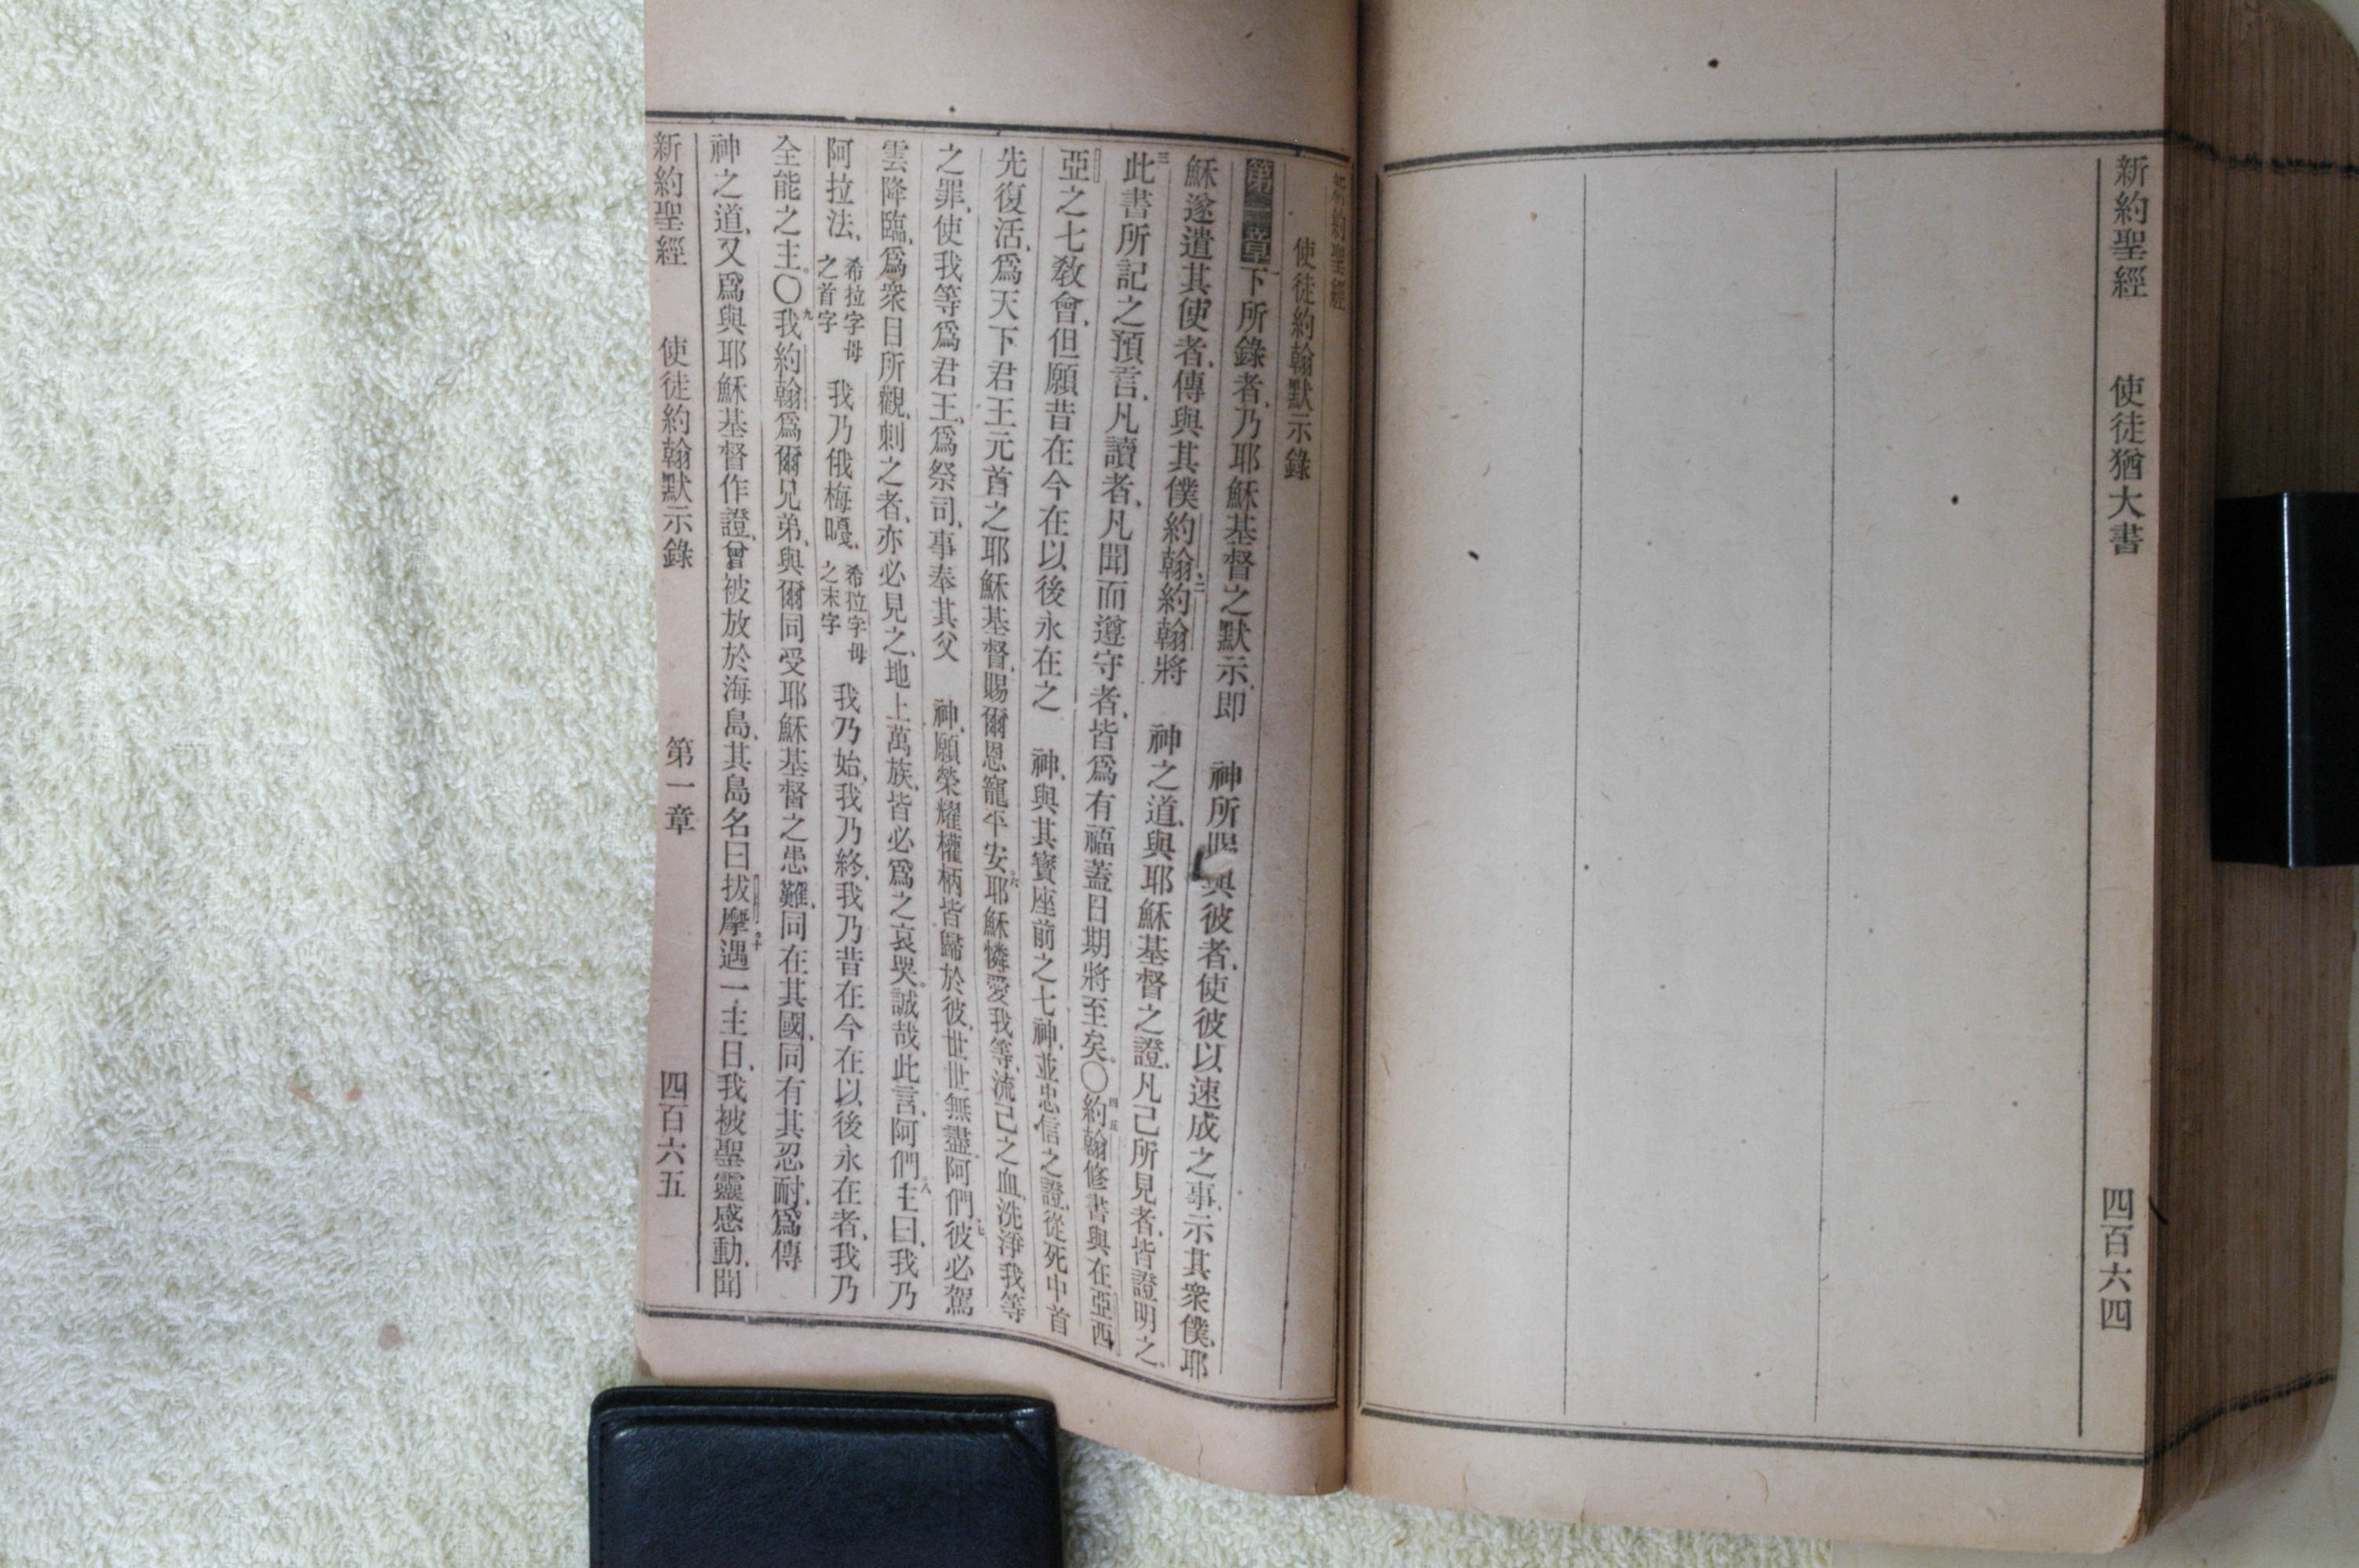 新約聖經 使徒猶大書 四百六四
新約聖經
使徒約翰默示錄
第一章下所錄者、乃耶穌基督之默示、卽 神所賜與彼者、使彼以速成之事、示其衆僕、耶
穌遂遣其使者、傳與其僕約翰、二約翰將 神之道、與耶穌基督之證、凡己所見者、皆證明之。
三此書所記之預言、凡讀者、凡聞而遵守者、皆爲有福、蓋日期將至矣。〇四五約翰修書與在亞西
亞之七教會、但願昔在今在以後永在之 神、與其寶座前之七神、並忠信之證、從死中首
先復活、爲天下君王元首之耶穌基督、賜爾恩寵平安。六耶穌憐愛我等、流己之血、洗淨我等
之罪、使我等爲君王、爲祭司、事奉其父 神、願榮耀權柄皆歸於彼、世世無盡、阿們。七彼必駕
雲降臨、爲衆目所觀、刺之者、亦必見之、地上萬族、皆必爲之哀哭。誠哉此言、阿們。八主曰、我乃
阿拉法、希拉字母之首字 我乃俄梅嘎、希拉字母之末字 我乃始、我乃終、我乃昔在今在以後永在者、我乃
全能之主。〇九我約翰爲爾兄弟、與爾同受耶穌基督之患難、同在其國、同有其忍耐、爲傳
神之道、又爲與耶穌基督作證、曾被放於海島、其島名曰拔摩。十遇一主日、我被聖靈感動、聞
新約聖經 使徒約翰默示錄 第一章 四百六五